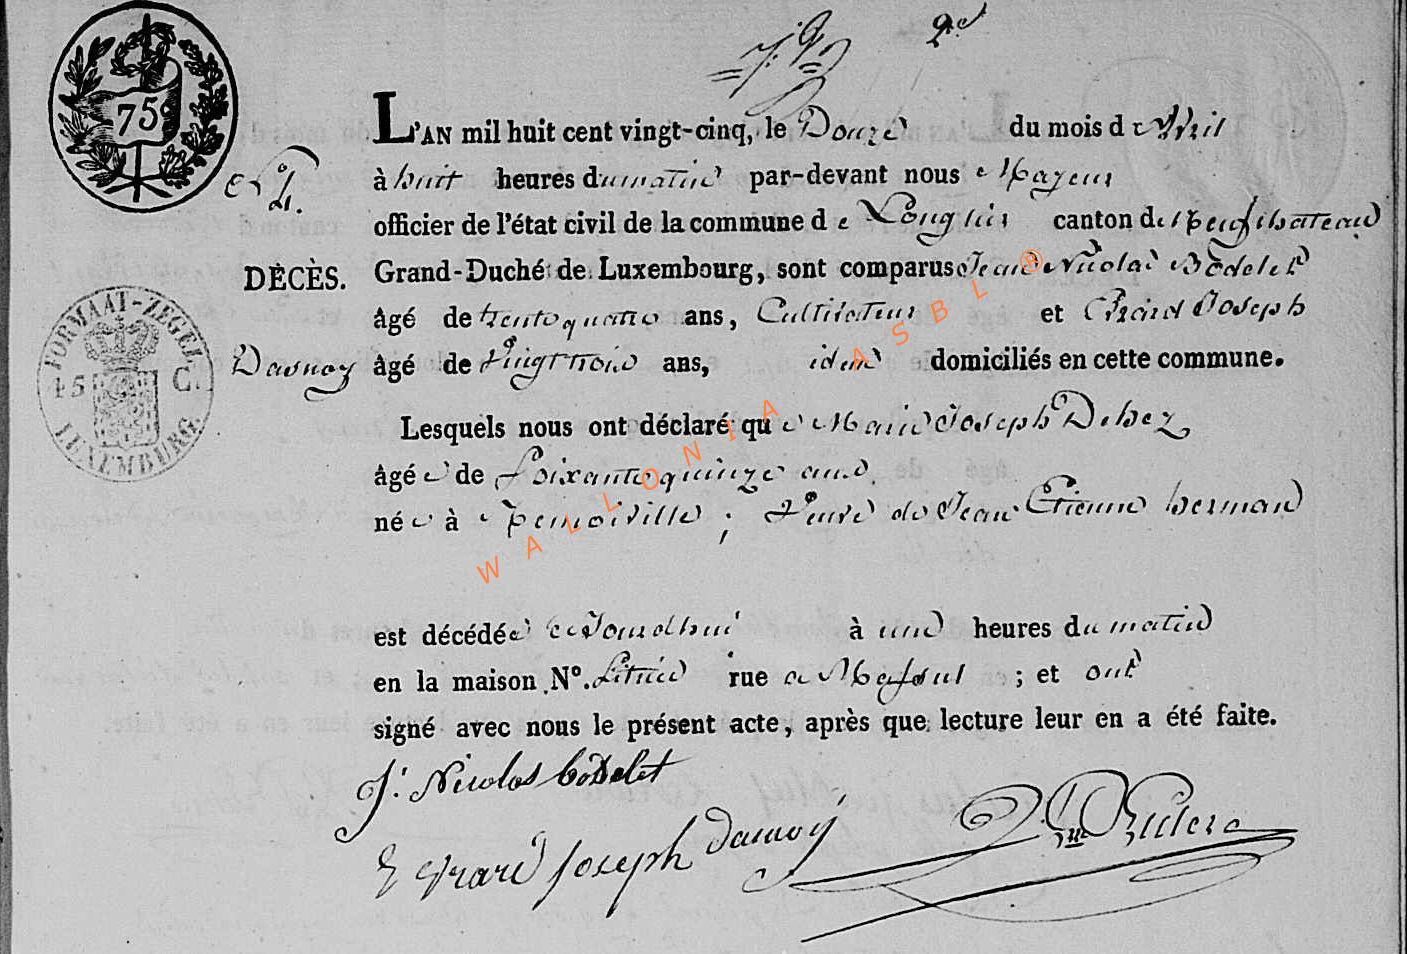 75c
L'AN mil huit cent vingt-cinq, le Douze du mois de Avril
à huit heures du matin par-devant nous Mayeur
officier de l'état civil de la commune de Longlier canton de Neufchateau
DÉCÈS. Grand-Duché de Luxembourg, sont comparus Jean Nicolas Bodelet
âgé de trente quatre ans, Cultivateur et Evrard Joseph
Dasnoy âgé de vingt trois ans, idem domiciliés en cette commune.
FORMAAT-ZEGEL
15 C.
LUXEMBURG.
Lesquels nous ont déclaré que Marie Joseph Dehez
âgée de Soixante quinze ans
née à Benoiville ; Veuve de Jean Etienne herman
est décédée cejourdhui à une heures du matin
en la maison N°. Litrée rue a Massul ; et ont
signé avec nous le présent acte, après que lecture leur en a été faite.
J. Nicolas bodelet
Evrard Joseph dasnoy
WALLONIA ASBL ®